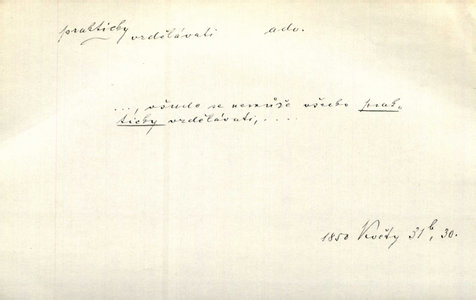 prakticky vzdělávati adv.
..., všude se nemůže všecko prak-
ticky vzdělávati, ....
1850 Květy 31b, 30.